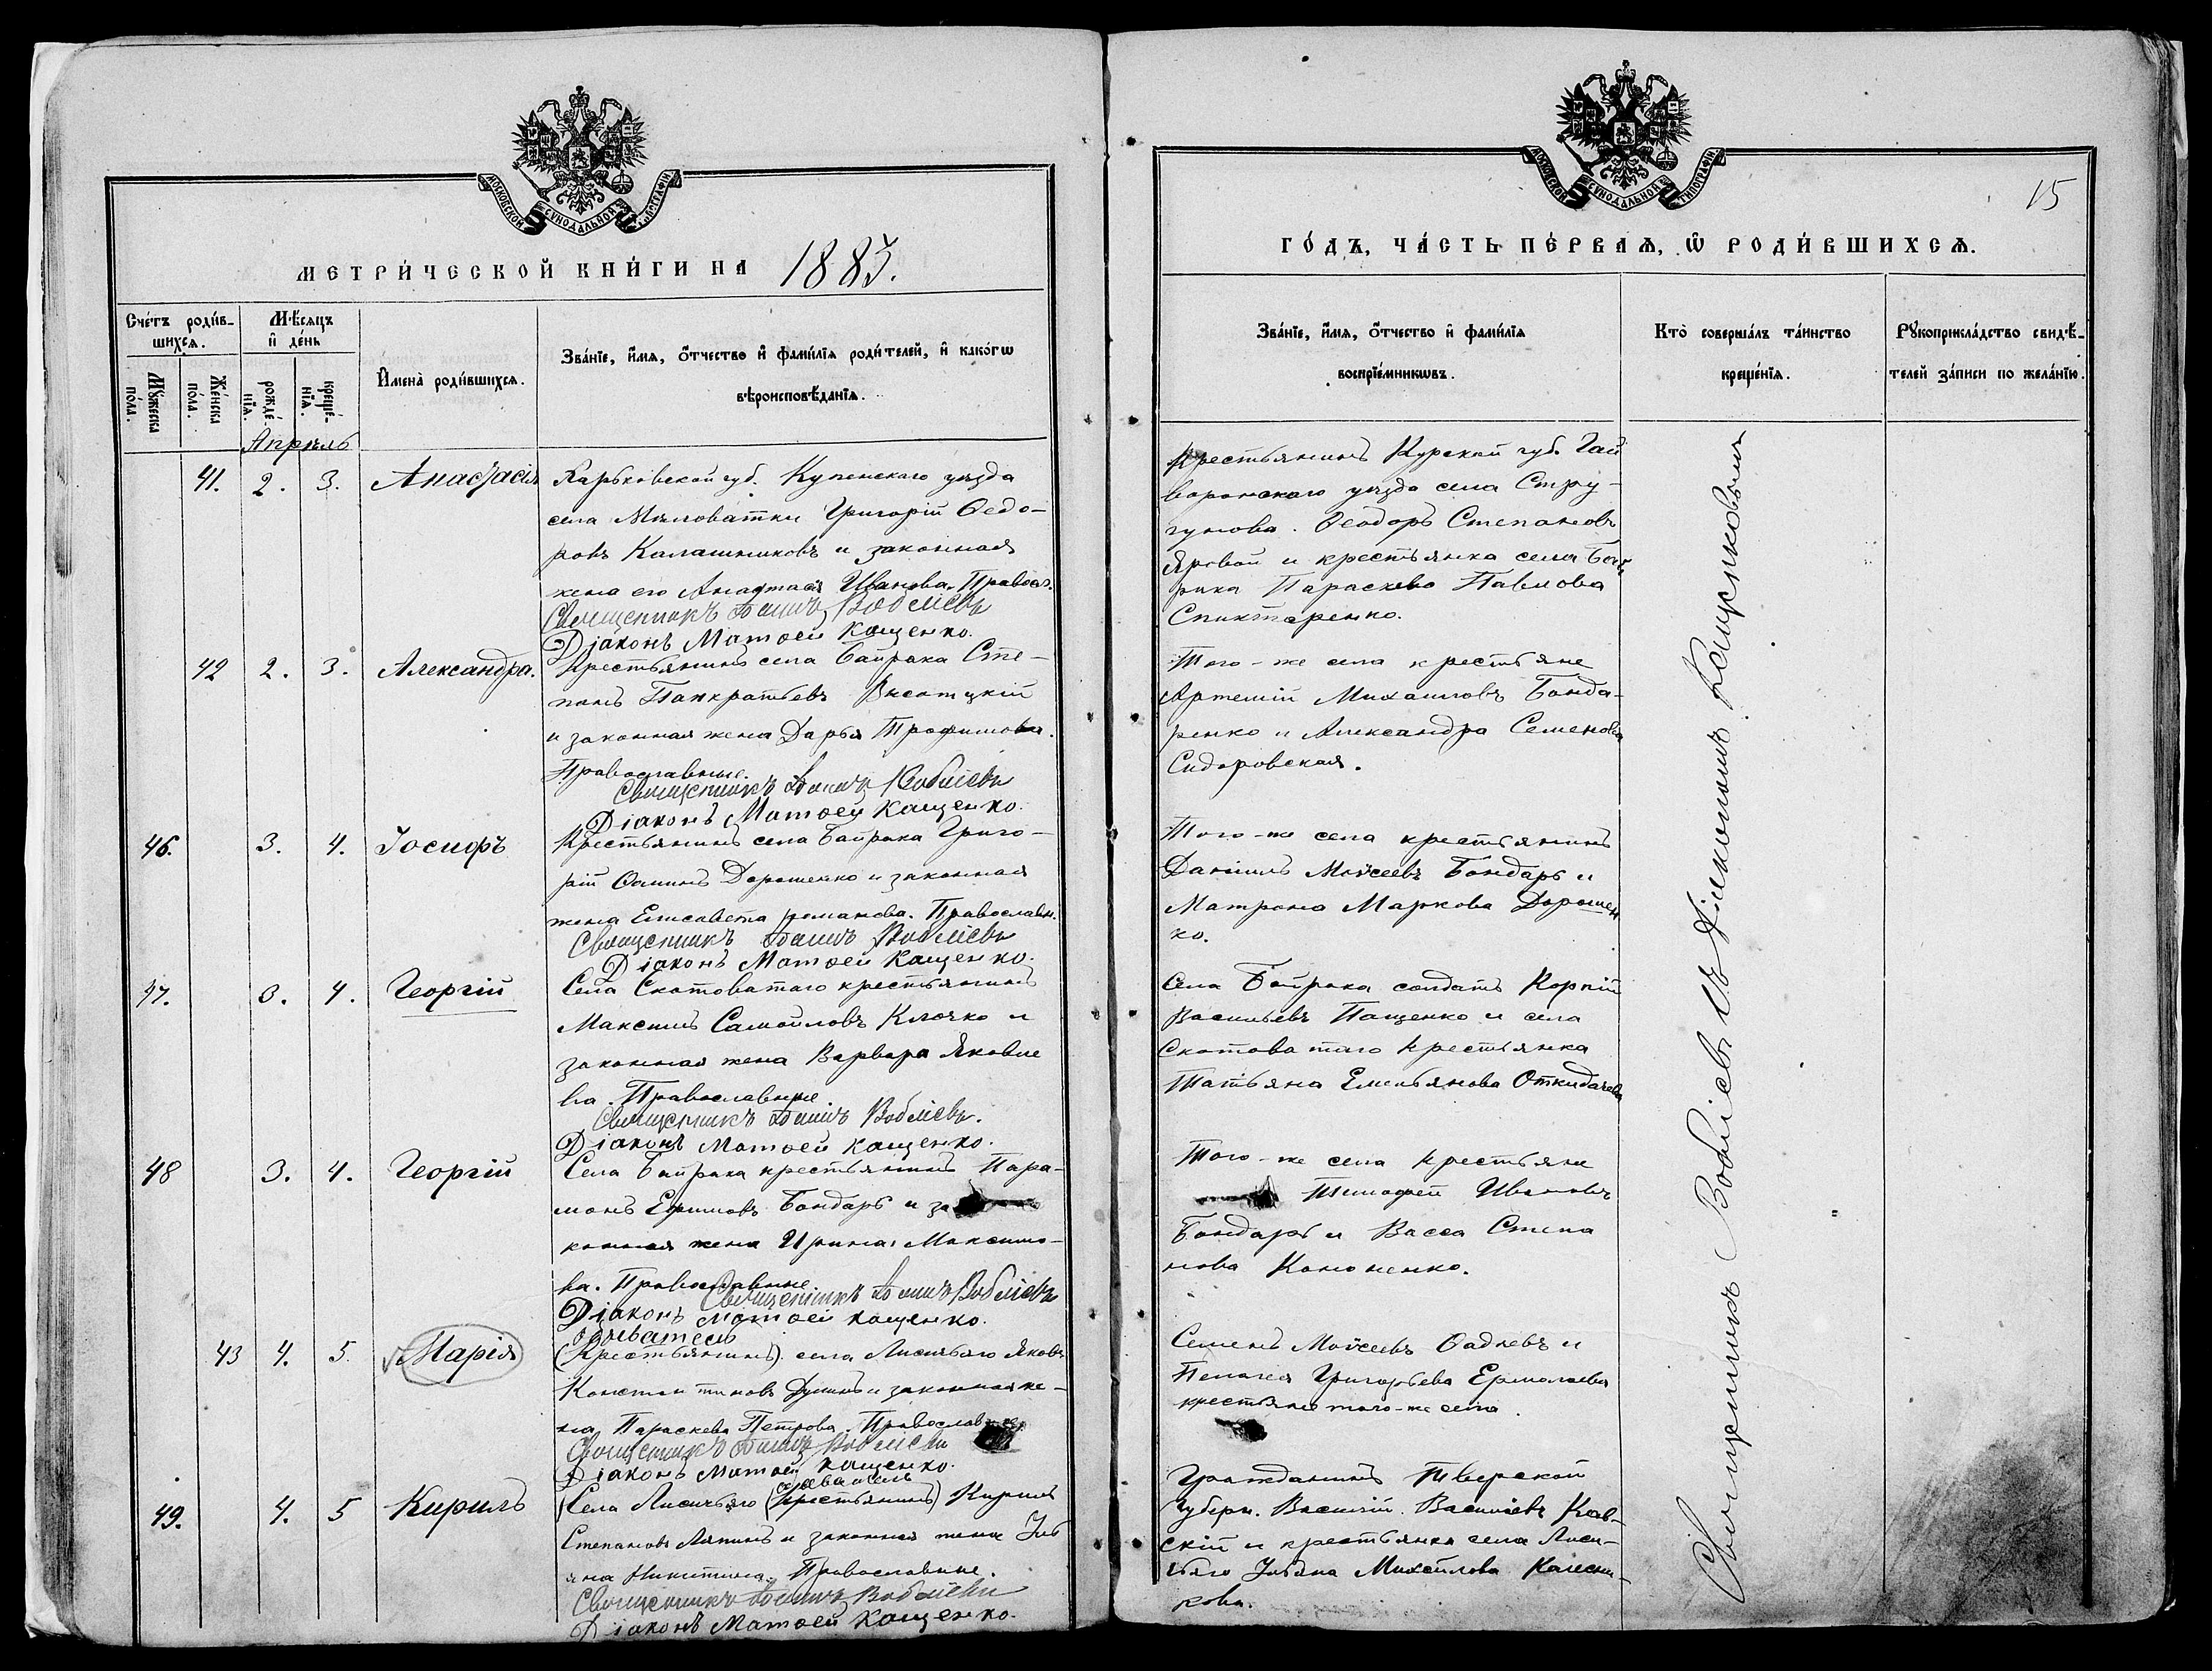 МОСКОВСКОЙ СѴНОДАЛЬНОЙ ТИПОГРАФІИ
МЕТРИ́ЧЕСКОЙ КНИ́ГИ НА 1883.
Сче́тъ роди́в-
шихсѧ.
Мꙋ́жеска
по́ла.
Же́нска
по́ла.
Мѣ́сѧцъ
и҆ де́нь
рожде́-
нїѧ.
креще́-
нїѧ.
И҆мена̀ роди́вшихсѧ.
Зва́нїе, и҆́мѧ, ѻ҆́тчество и҆ фами́лїѧ роди́телей, и҆ како́гѡ
вѣроисповѣ́данїѧ.
Апрѣль
41. 2. 3. Анастасія Харьковской губ. Купенскаго уѣзда
села Мѣловатки Григорій Ѳедо-
ровъ Калашниковъ и законная
жена его Анастасія Иванова. Правосл.
Священникъ Воблієвъ
Діаконъ Матѳей Кащенко.
42 2. 3. Александра. Крестьянинъ села Байрака Сте-
панъ Панкратьевъ Висоцкій
и законная жена Дарья Трофимова.
Православные.
Священникъ Воблієвъ
Діаконъ Матѳей Кащенко.
46. 3. 4. Іосифъ Крестьянинъ села Байрака Григо-
рій Ѳоминъ Дорошенко и законная
жена Елисавета Романова. Православн.
Священникъ Воблієвъ
Діаконъ Матѳей Кащенко.
47. 3. 4. Георгій Села Скотоватаго крестьянинъ
Максимъ Самойловъ Клочко и
законная жена Варвара Яковле
ва. Православные
Священникъ Воблієвъ.
Діаконъ Матѳей Кащенко.
48 3. 4. Георгій Села Байрака крестьянинъ Пара-
монъ Ефимовъ Бондарь и за
конная жена Ирина Максимо-
ва. Православные.
Священникъ Воблієвъ
Діаконъ Матѳей Кащенко.
обыватель
43 4. 5. Марія (Крестьянинъ) села Лисичьяго Яковъ
Константиновъ и законная же-
на Параскева Петрова. Православные
Священникъ Воблієвъ
Діаконъ Матѳей Кащенко.
обыватель
49. 4. 5 Кирилъ Села Лисичьяго (крестьянинъ) Кирилъ
Степановъ Ляпинъ и законная жена Улі
яна Никитина. Православные.
Священникъ Воблієвъ
Діаконъ Матѳей Кащенко.
МОСКОВСКОЙ СѴНОДАЛЬНОЙ ТИПОГРАФІИ
15
ГО́ДЪ, ЧА́СТЬ ПЕ́РВАѦ, Ѡ҆ РОДИ́ВШИХСѦ.
Зва́нїе, и҆́мѧ, ѻ҆́тчество и҆ фами́лїѧ
воспрїе́мникѡвъ.
Кто̀ соверша́лъ та́инство
креще́нїѧ.
Рꙋкоприкла́дство свидѣ́-
телей за́писи по жела́нїю.
Крестьянинъ Курской губ. Гай
воронскаго уѣзда села Стри-
гунова. Ѳеодоръ Степановъ
Яровой и крестьянка села Бай
рака Параскева Павлова
Того-же села крестьяне
Артемій Михаиловъ Бонда-
ренко и Александра Семенова
Сидоровская.
Того-же села крестьянинъ
Даніилъ Моѵсеевъ Бондарь и
Матрона Маркова Дорошен
ко.
Села Байрака солдатъ Корній
Васильевъ Пащенко и села
Скотоватаго крестьянка
Татьяна Емельянова Откидачева
Того-же села крестьяне
Тимофей Ивановъ
Бондарь и Васса Степа
нова Кононенко.
Семенъ Моѵсеевъ Ѳадѣевъ и
Пелагея Григорьева Ермолаева
крестьяне того-же села.
Гражданинъ Тверской
Губерн. Василій Васильевъ
скій и крестьянка села Лиси-
чьяго Ульяна Михайлова Калесни-
кова.
Священникъ Воблієвъ съ Діакономъ Кащенковымъ